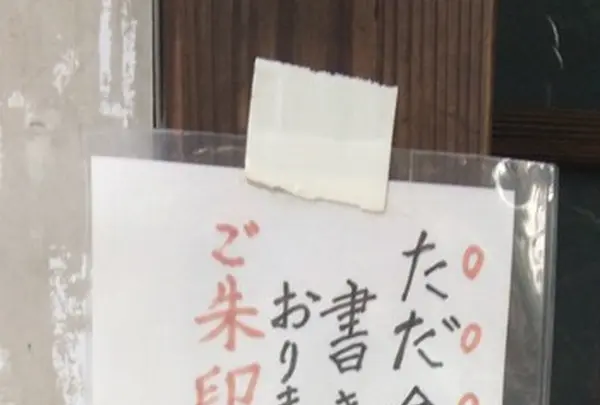 ただ
書き
おりま
ご朱印